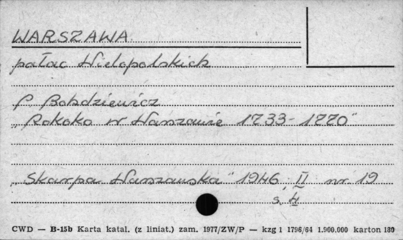 WARSZAWA
pałac Wielopolskich
P Bohdziewicz
"Rokoko w Warszawie 1733-1770"
"Skarpa Warszawska" 1946, II nr 19
s. 4
CWD — B-15b Karta katal. (z liniat.) zam. 1977/ZW/P — kzg 1 1796/64 1.900.000 karton 180